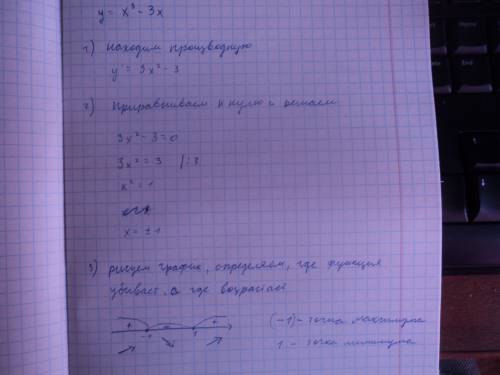 y = x³ - 3x
1) находим производную
y' = 3x² - 3
2) приравниваем к нулю и решаем
3x² - 3 = 0
3x² = 3 /:3
x² = 1
x = ± 1
3) рисуем график, определяем, где функция
убывает, а где возрастает
+ - +
-1 1
(-1) - точка максимума
1 - точка минимума